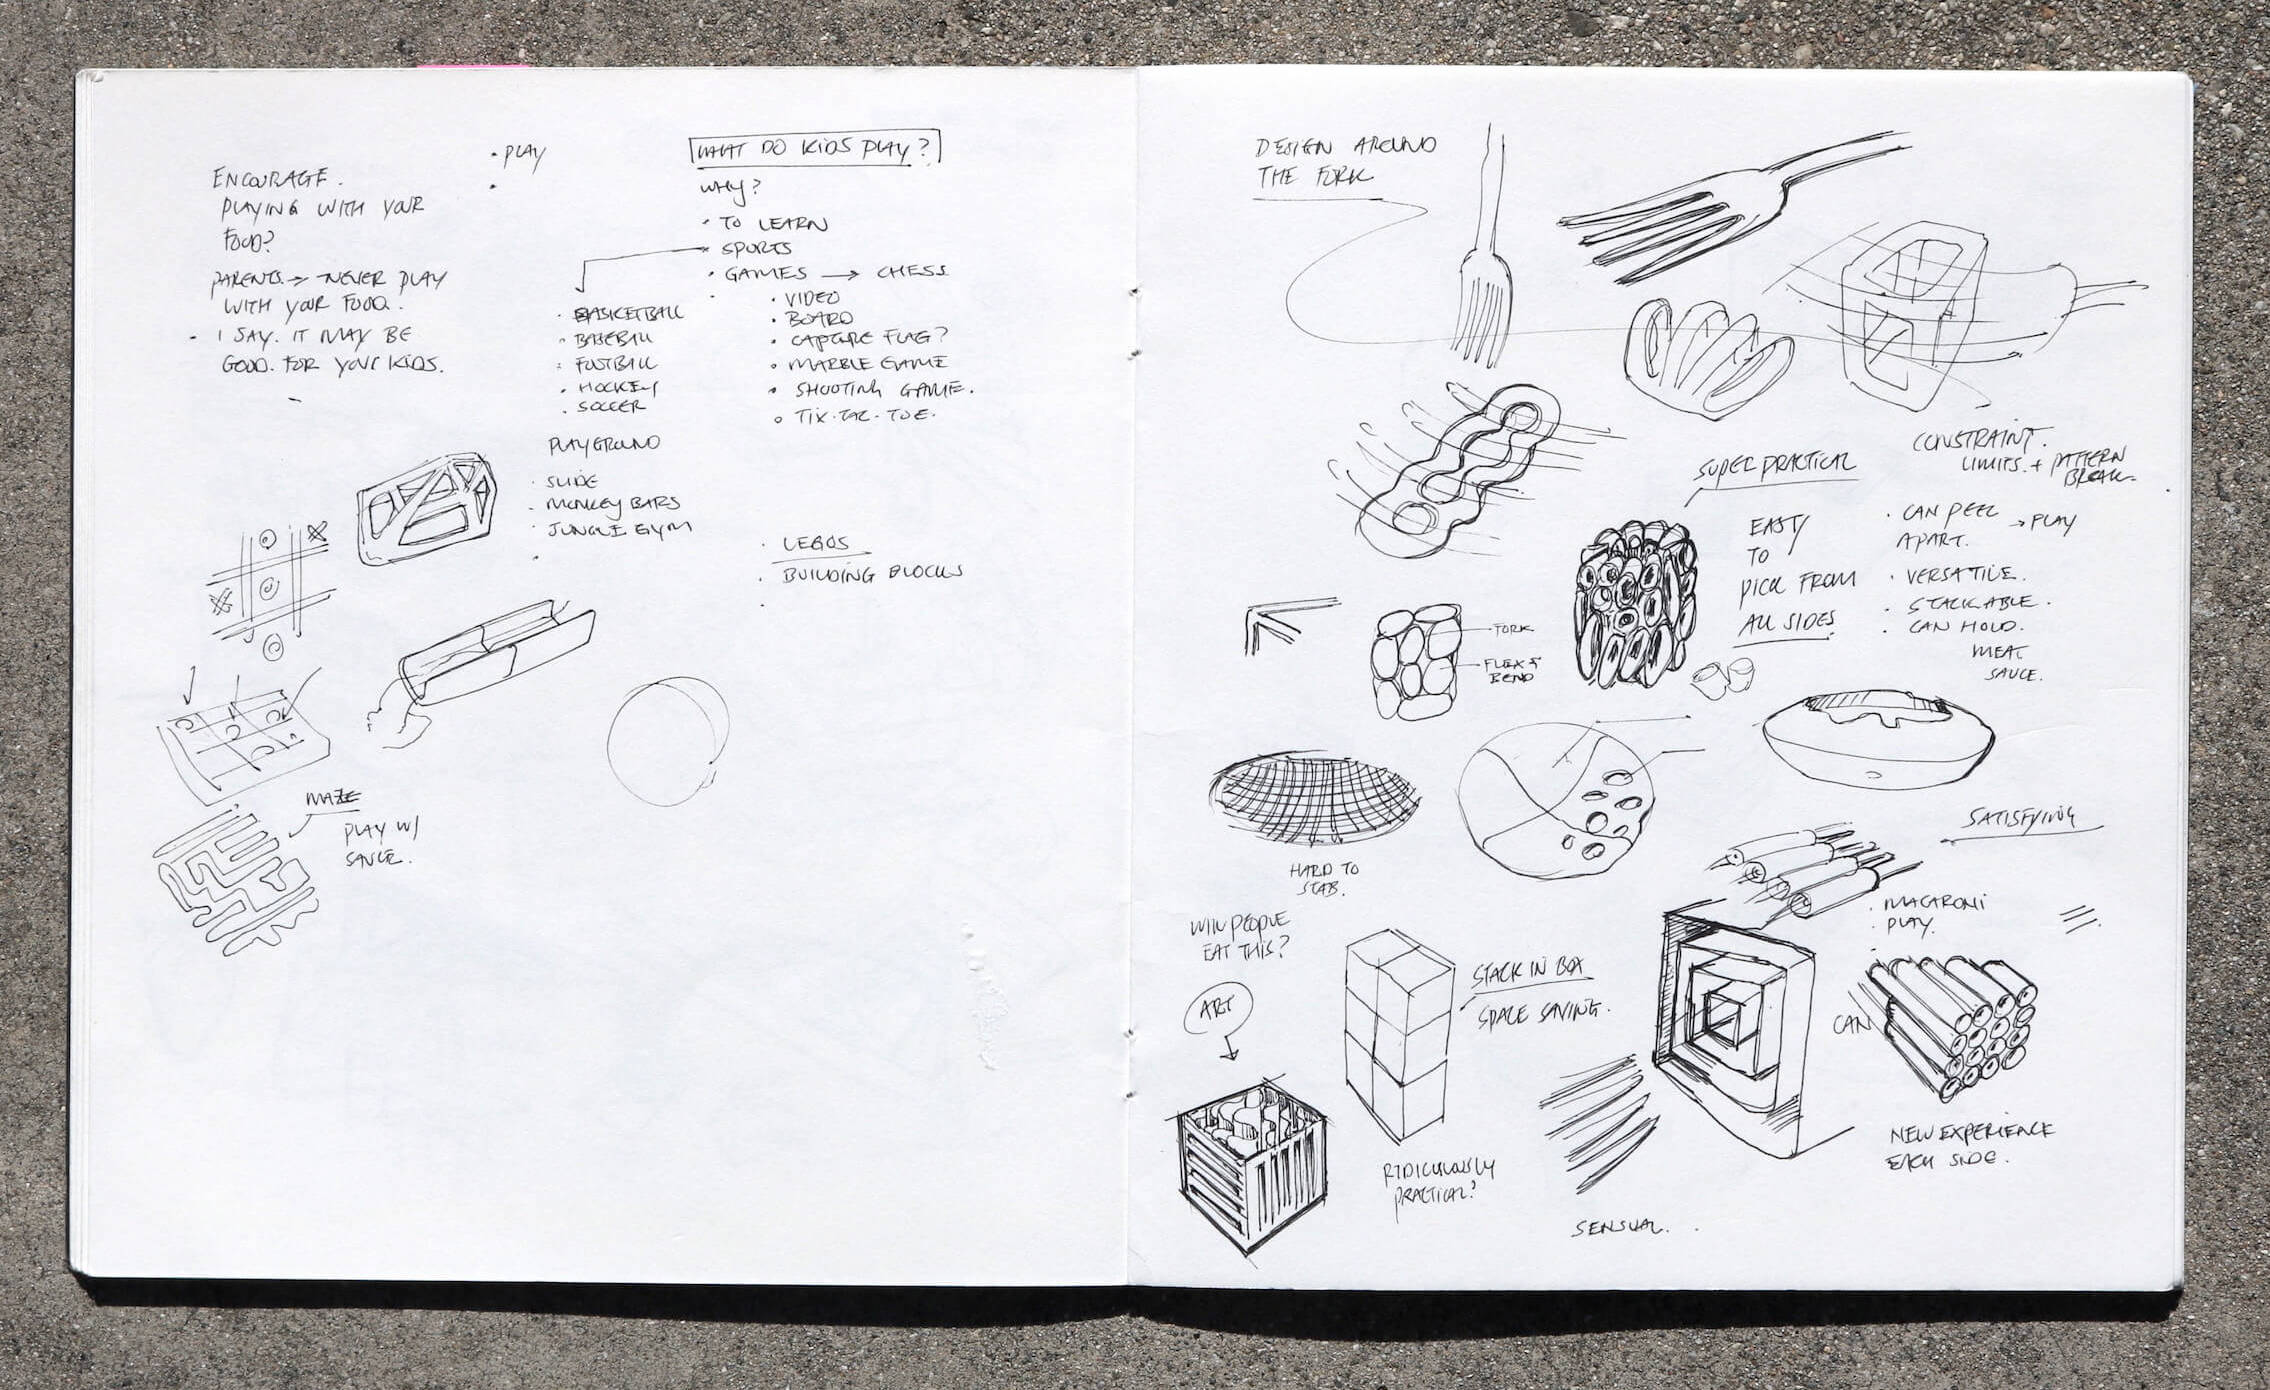 ENCOURAGE.
PLAYING WITH YOUR
FOOD?
PARENTS → NEVER PLAY
WITH YOUR FOOD.
• I SAY. IT MAY BE
GOOD. FOR YOUR KIDS.
• PLAY
WHAT DO KIDS PLAY?
WHY?
• TO LEARN
• SPORTS
• GAMES → CHESS
• BASKETBALL
• BASEBALL
• FOOTBALL
• HOCKEY
• SOCCER
• VIDEO
• BOARD
• CAPTURE FLAG?
• MARBLE GAME
• SHOOTING GAME.
• TIX-TAC-TOE.
PLAYGROUND
• SLIDE
• MONKEY BARS
• JUNGLE GYM
• LEGOS
• BUILDING BLOCKS
MAZE
PLAY W/
SAUCE.
DESIGN AROUND
THE FORK
CONSTRAINT.
LIMITS. + PATTERN
BREAK.
SUPER PRACTICAL
EASY
TO
PICK FROM
ALL SIDES
• CAN PEEL
APART.
→ PLAY
• VERSATILE.
• STACKABLE.
• CAN HOLD.
MEAT
SAUCE.
FORK
FLEX &
BEND
HARD TO
STAB.
SATISFYING
• MACARONI
PLAY.
WILL PEOPLE
EAT THIS?
ART
STACK IN BOX
SPACE SAVING.
CAN
RIDICULOUSLY
PRACTICAL?
NEW EXPERIENCE
EACH SIDE.
SENSUAL.